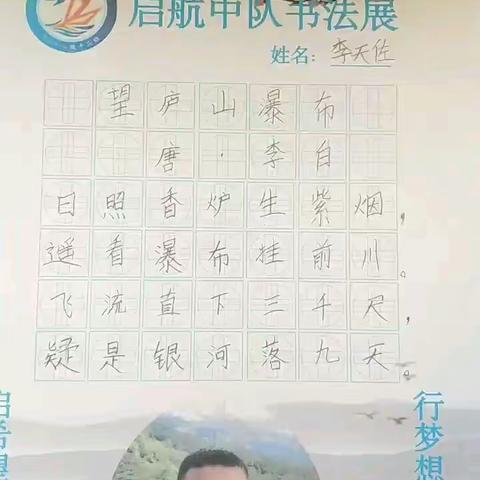 启航中队书法展
姓名：李天佐
望庐山瀑布
唐·李白
日照香炉生紫烟，
遥看瀑布挂前川。
飞流直下三千尺，
疑是银河落九天。
启希望
行梦想